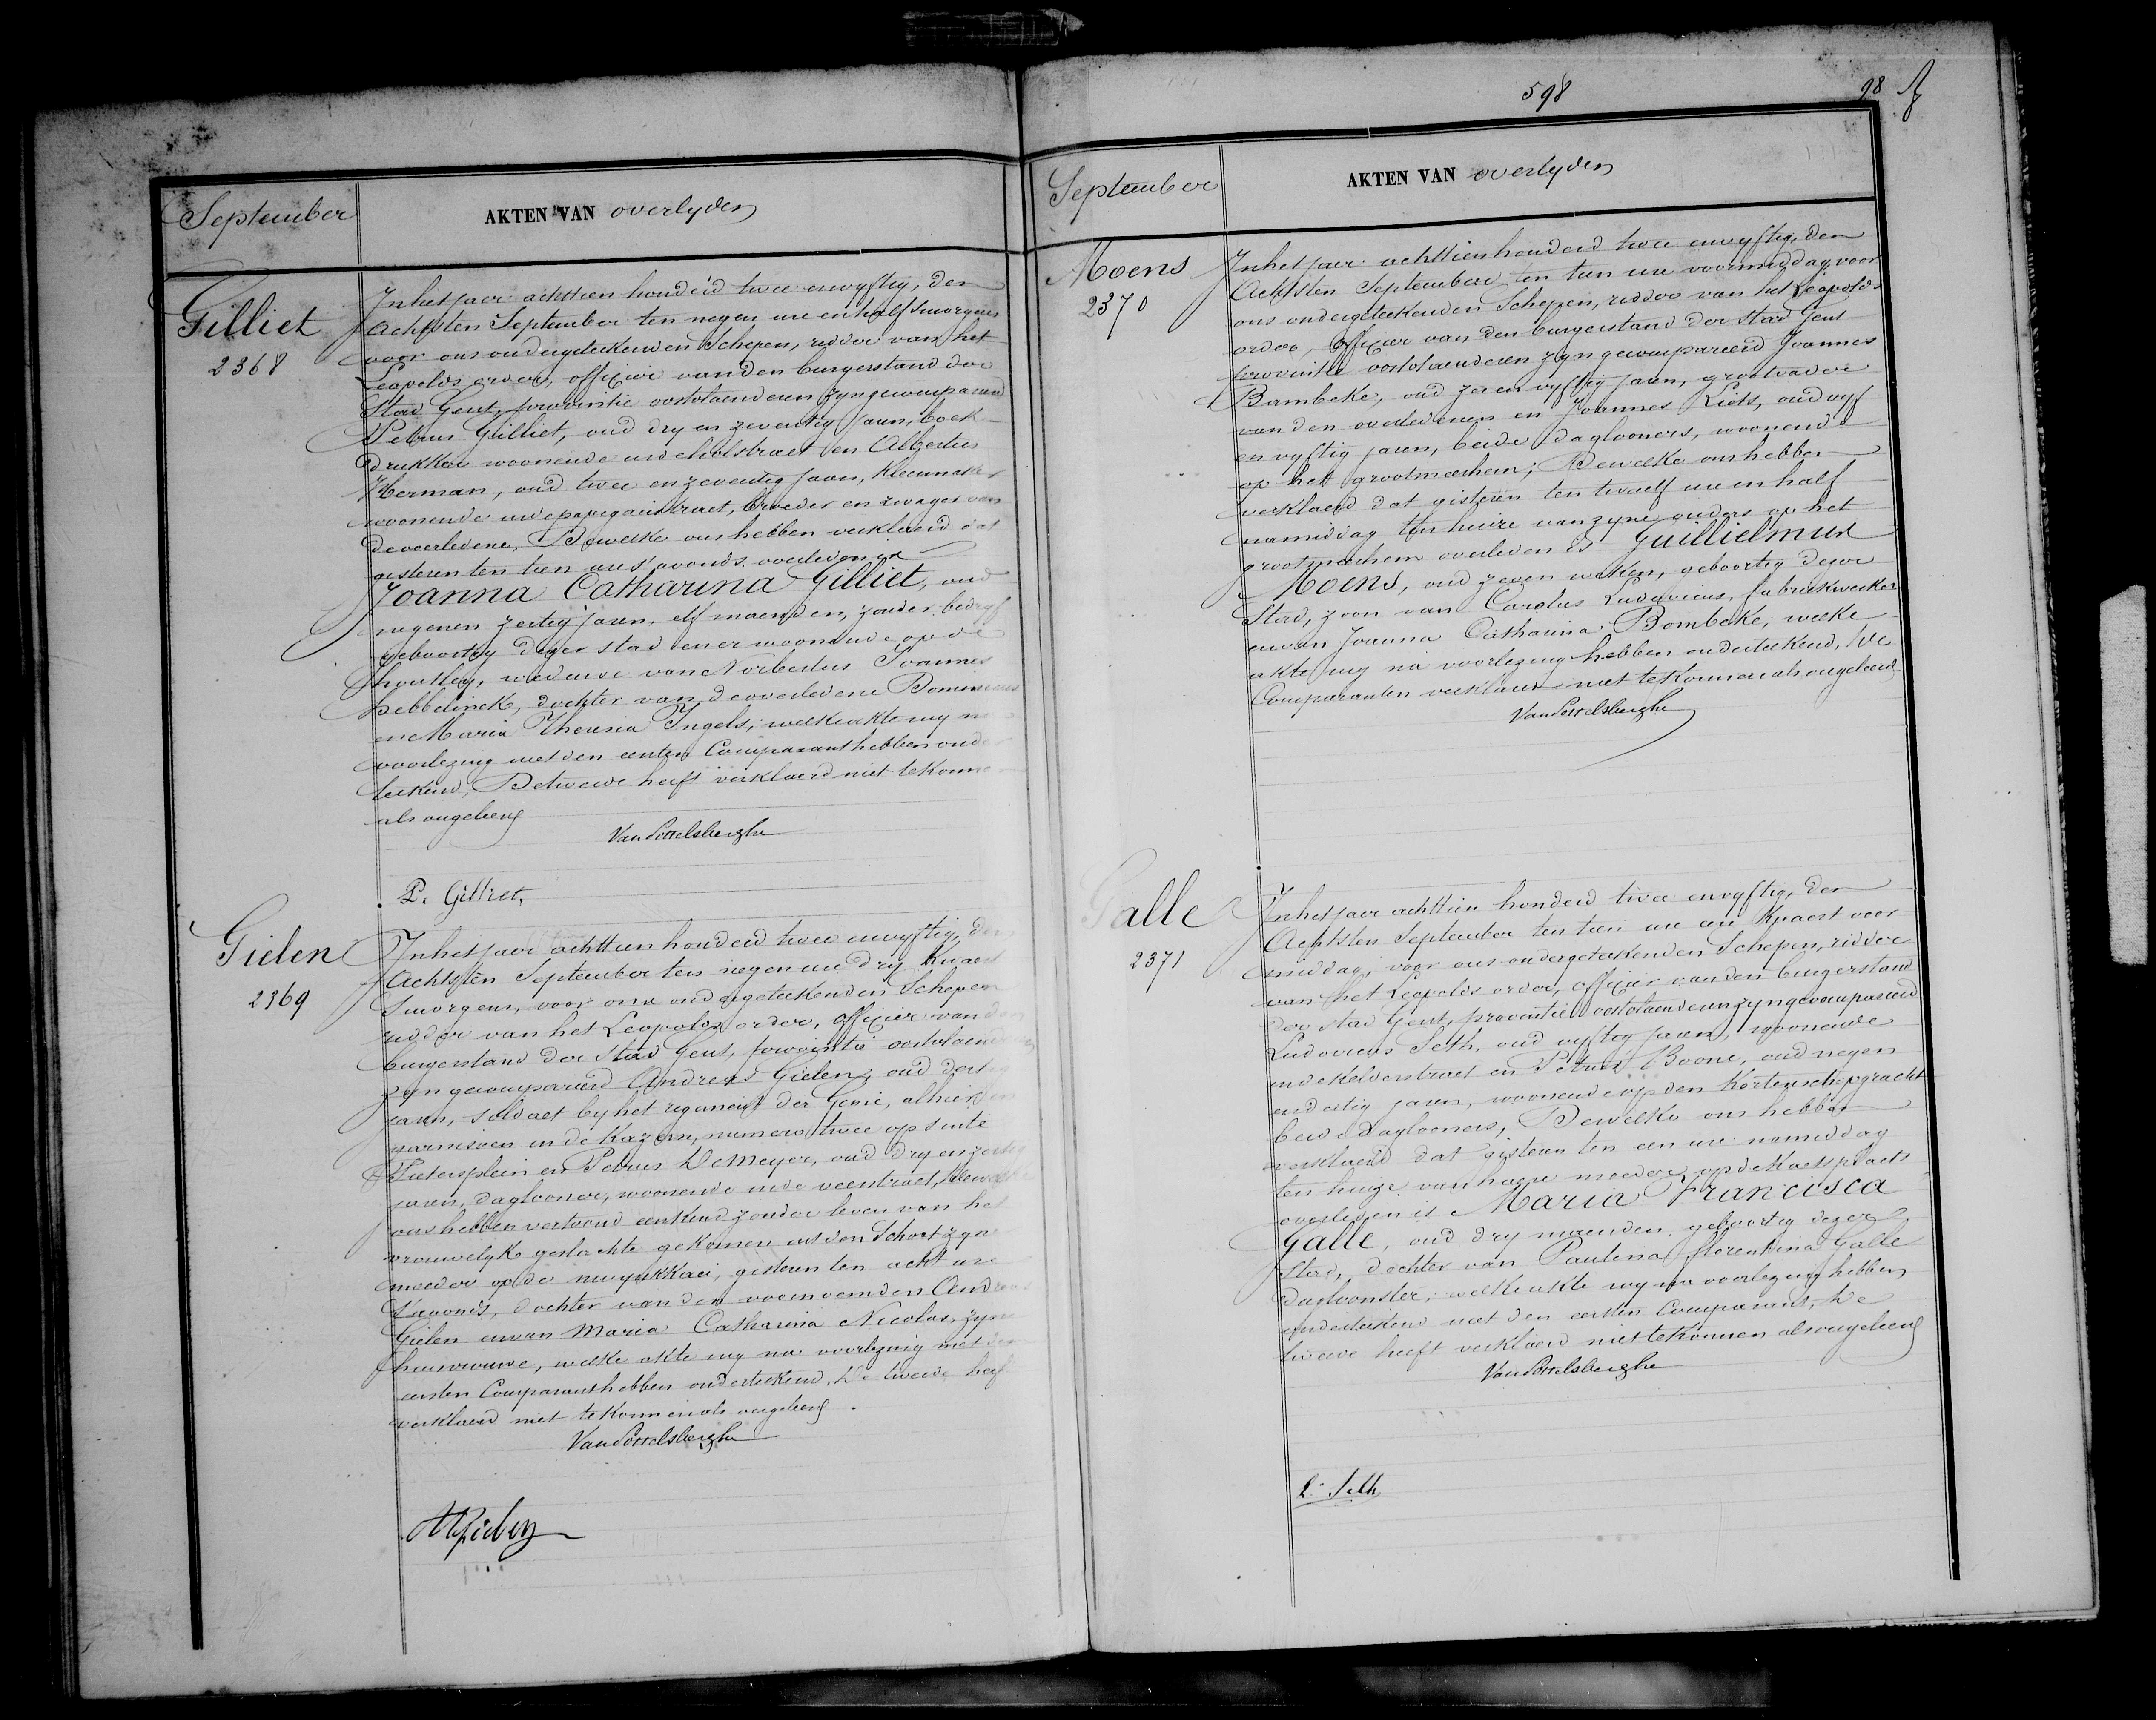 598
98
September
AKTEN VAN overlyden
Gilliet
2368
In het jaer achttien honderd twee en vyftig, den
Achtsten September ten negen ure en half smorgens
voor ons ondergeteekenden Schepen, ridder van het
Leopolds order, officier van den burgerstand der
Stad Gent, provintie oostvlaenderen zyn gecompareerd
Petrus Gilliet, oud dry en zeventig jaren, boek-
drukker woonende in de holstraet en Albertus
Herman, oud twee en zeventig jaren, kleermaker
woonende in de papegaeistraet, broeder en zwager van
de overledene, Dewelke ons hebben verklaerd dat
gisteren ten tien ure s'avonds overleden is
Joanna Catharina Gilliet, oud
negen en zestig jaren, elf maenden, zonder bedryf
geboortig dezer stad en er woonende op de
houtley, weduwe van Norbertus Joannes
hebbelinck, dochter van de overledene Dominicus
en Maria Theresia Ingels; welke akte wy na
voorlezing met den eersten Comparant hebben onder
teekend, De tweede heeft verklaerd niet te konnen
als ongeleerd
VanPottelsberghe
P. Gilliet,
Gielen
2369
In het jaer achttien honderd twee en vyftig, den
Achtsten September ten negen ure dry kwaert
Smorgens, voor ons ondergeteekenden Schepen
ridder van het Leopolds order, officier van den
burgerstand der Stad Gent, provintie oostvlaenderen
zyn gecompareerd Andreas Gielen, oud dertig
jaren, soldaet by het regiment der Genie, alhier in
garnisoen in de kazern, numero twee op sinte
Pietersplein en Petrus De Meyer, oud dry en zestig
jaren, daglooner, woonende in de veerstraet, Dewelke
ons hebben vertoond een kind zonder leven van het
vrouwelyk geslachte gekomen uit den Schoot zyner
moeder op de muinkkaei, gisteren ten acht ure
s'avonds, dochter van den voornoemden Andreas
Gielen en van Maria Catharina Nicolas, zyne
huisvrouwe, welke akte wy na voorlezing met den
eersten Comparant hebben onderteekend, De tweede heeft
verklaerd niet te konnen als ongeleerd.
VanPottelsberghe
AGielen
September
AKTEN VAN overlyden
Moens
2370
In het jaer achttien honderd twee en vyftig, den
Achtsten September ten tien ure voormiddag voor
ons ondergeteekenden Schepen, ridder van het Leopolds
order, officier van den burgerstand der stad Gent
provintie oostvlaenderen zyn gecompareerd Joannes
Bambeke, oud zeven vyftig jaren, grootvader
van den overledenen en Joannes Liets, oud vyf
en vyftig jaren, beide daglooners, woonende
op het grootmeerhem; Dewelke ons hebben
verklaerd dat gisteren ten twaelf ure en half
namiddag ten huize van zyne ouders op het
grootmeerhem overleden is Guillielmus
Moens, oud zeven weken, geboortig dezer
Stad, zoon van Carolus Ludovicus, fabriekwerker
en van Joanna Catharina Bombeke; welke
akte wy na voorlezing hebben onderteekend, De
Comparanten verklaren niet te konnen als ongeleerd
VanPottelsberghe
Galle
2371
In het jaer achttien honderd twee en vyftig, den
Achtsten September ten tien ure een kwaert voor
middag, voor ons ondergeteekenden Schepen, ridder
van het Leopolds order, officier van den burgerstand
der stad Gent, provintie oostvlaenderen zyn gecompareerd
Ludovicus Seth, oud vyftig jaren, woonende
in de Kelderstraet en Petrus Boone, oud negen
en dertig jaren, woonende op den Korten schipgracht
beide daglooners, Dewelke ons hebben
verklaerd dat gisteren ten een ure namiddag
ten huize van haere moeder op de Kaetsplaets
overleden is Maria Francisca
Galle, oud dry maenden, geboortig dezer
Stad, dochter van Paulina Florentina Galle
dagloonster; welke akte wy na voorlezing hebben
onderteekend met den eersten Comparant, De
tweede heeft verklaerd niet te konnen als ongeleerd
VanPottelsberghe
L: Seth